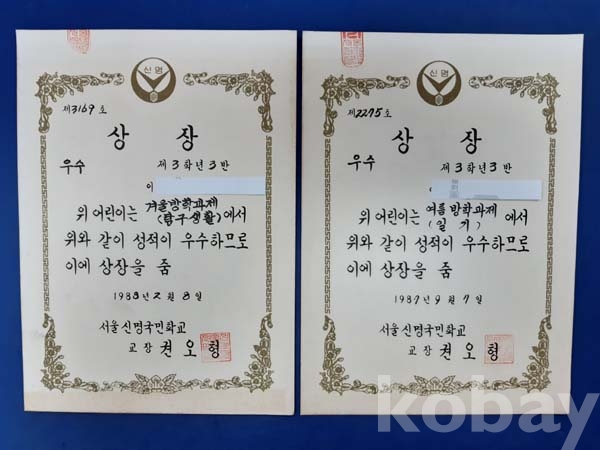 신명
제3169호
상 장
우수
제3학년3반
이
위 어린이는 겨울방학과제
(탐구생활)에서
위와 같이 성적이 우수하므로
이에 상장을 줌
1988년 2월 8일
서울신명국민학교
교장 권오형
신명
제2275호
상 장
우수
제3학년3반
위 어린이는 여름방학과제
(일기)에서
위와 같이 성적이 우수하므로
이에 상장을 줌
1987년 9월 7일
서울신명국민학교
교장 권오형
kobay